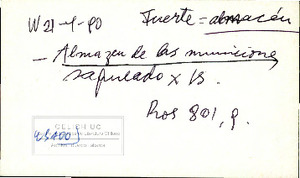 W 21-4-90 Fuerte = almacén
— Almazen de las municiones
sepultado x B.
Ros 801, 9.
CELICH UC